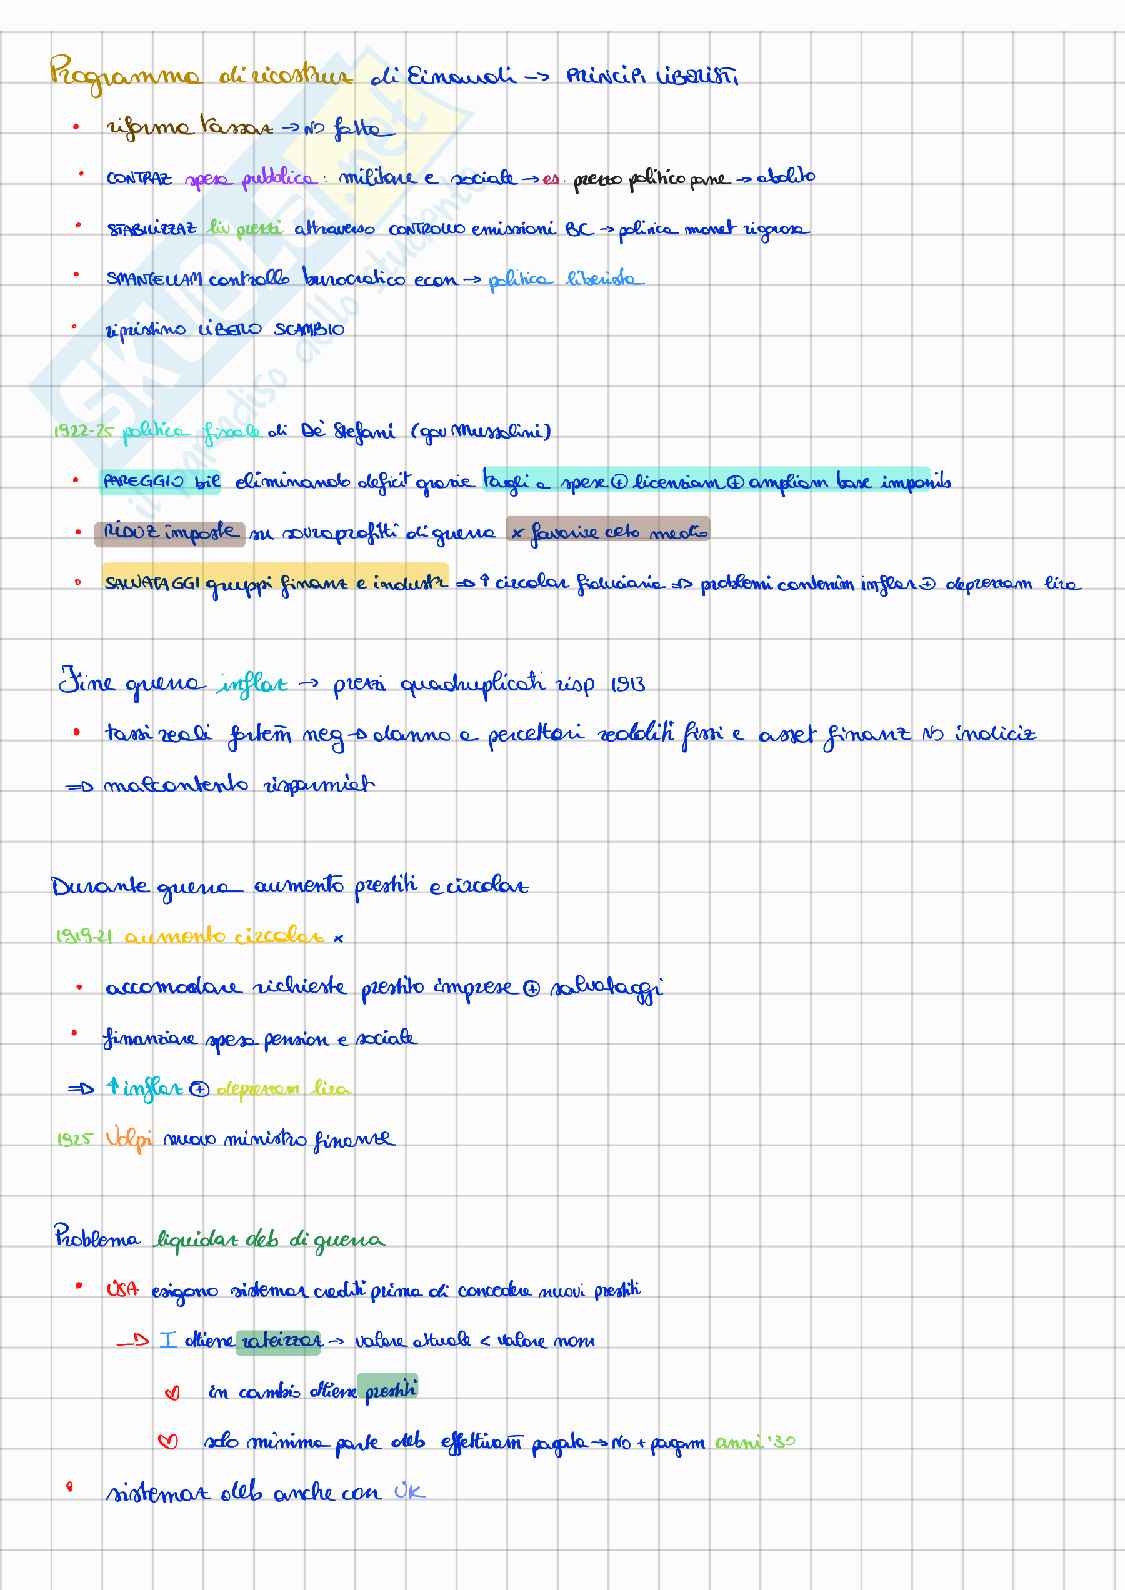 Programma di ricostruz di Einaudi → PRINCIPI LIBERISTI
• riforma tassaz → NO fatta
• CONTRAZ spesa pubblica: militare e sociale → es. prezzo politico pane → abolito
• STABILIZZAZ liv prezzi attraverso CONTROLLO emissioni BC → politica monet rigorosa
• SMANTELLAM controllo burocratico econ → politica liberista
• ripristino LIBERO SCAMBIO
1922-25 politica fiscale di De Stefani (gov Mussolini)
• PAREGGIO bil eliminando deficit grazie tagli a spese ⊕ licenziam ⊕ ampliam base imponib
• RIDUZ imposte su sovraprofitti di guerra x favorire ceto medio
• SALVATAGGI gruppi finanz e industr ⇒ ↑ circolaz fiduciaria ⇒ problemi contenim inflaz ⊕ deprezzam lira
Fine guerra inflaz → prezzi quadruplicati risp 1913
• tassi reali fortem neg → danno a percettori redditi fissi e asset finanz NO indiciz
⇒ malcontento risparmiat
Durante guerra aumento prestiti e circolaz
1919-21 aumento circolaz x
• accomodare richieste prestito imprese ⊕ salvataggi
• finanziare spesa pension e sociale
⇒ ↑ inflaz ⊕ deprezzam lira
1925 Volpi nuovo ministro finanze
Problema liquidaz deb di guerra
• USA esigono sistemaz crediti prima di concedere nuovi prestiti
→ I ottiene rateizzaz → valore attuale < valore nom
♡ in cambio ottiene prestiti
♡ solo minima parte deb effettivam pagata → NO + pagam anni '30
• sistemaz deb anche con UK
SKUOLA.net
il paradiso dello studente